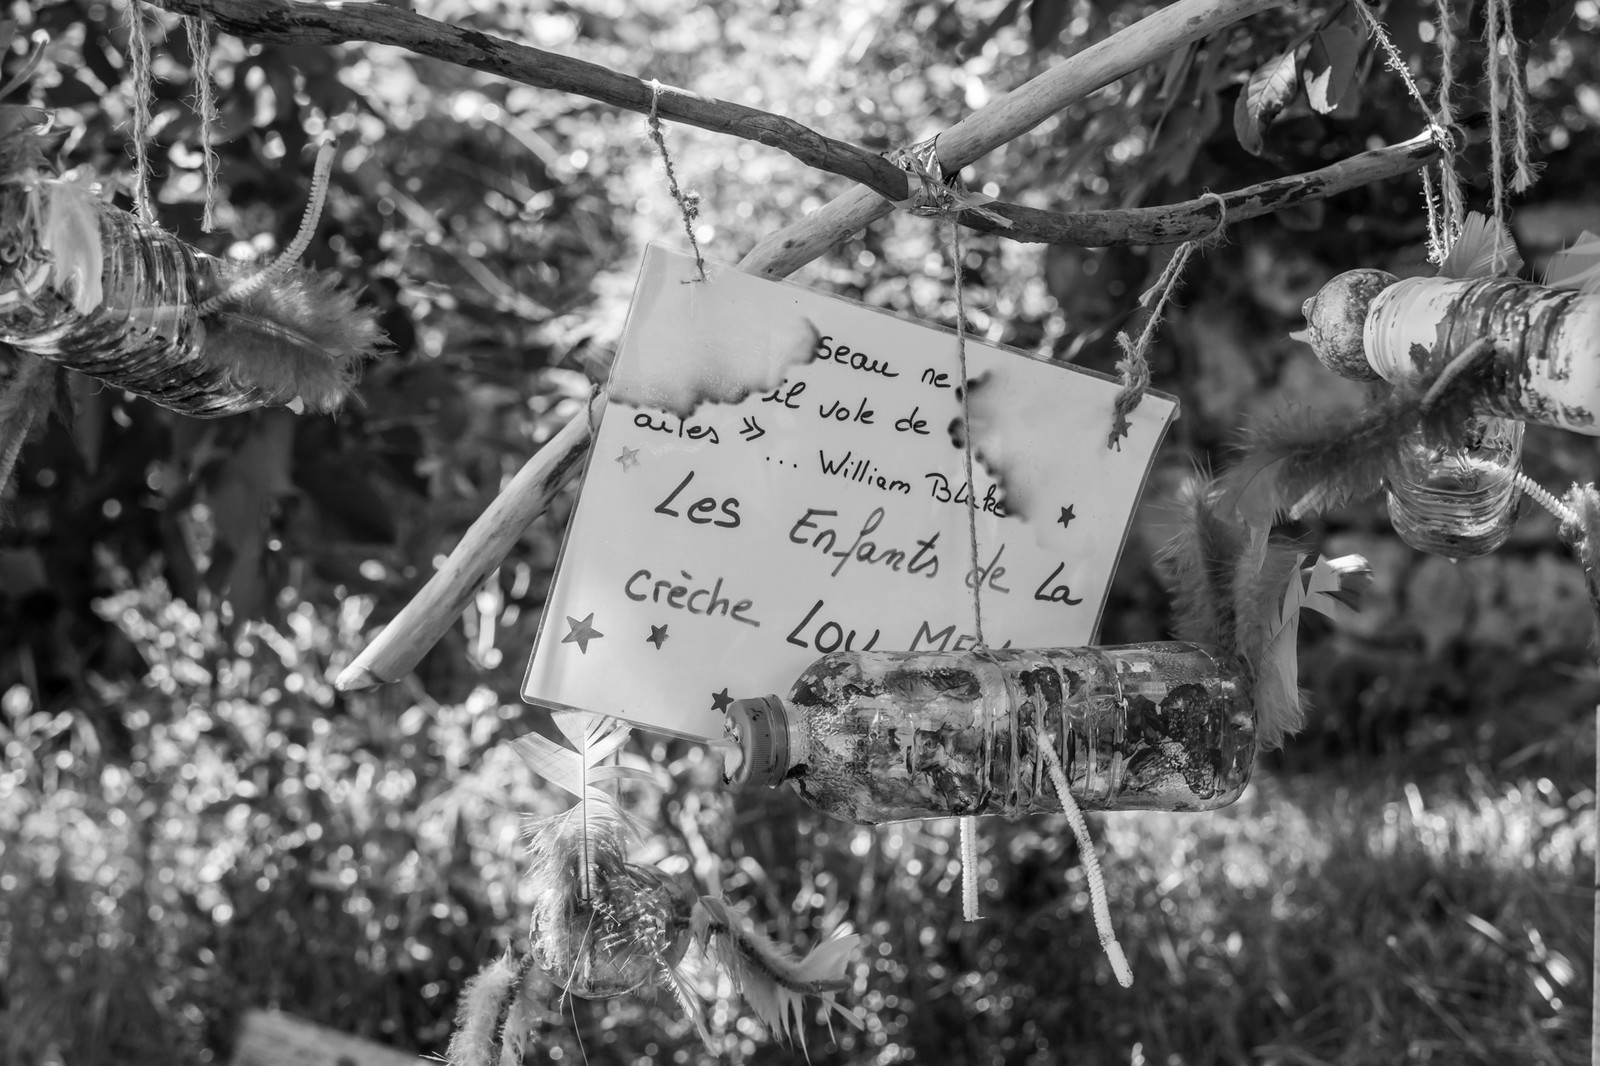 seau ne
il vole de
ailes »
... William Blake
Les Enfants de La
crèche LOU